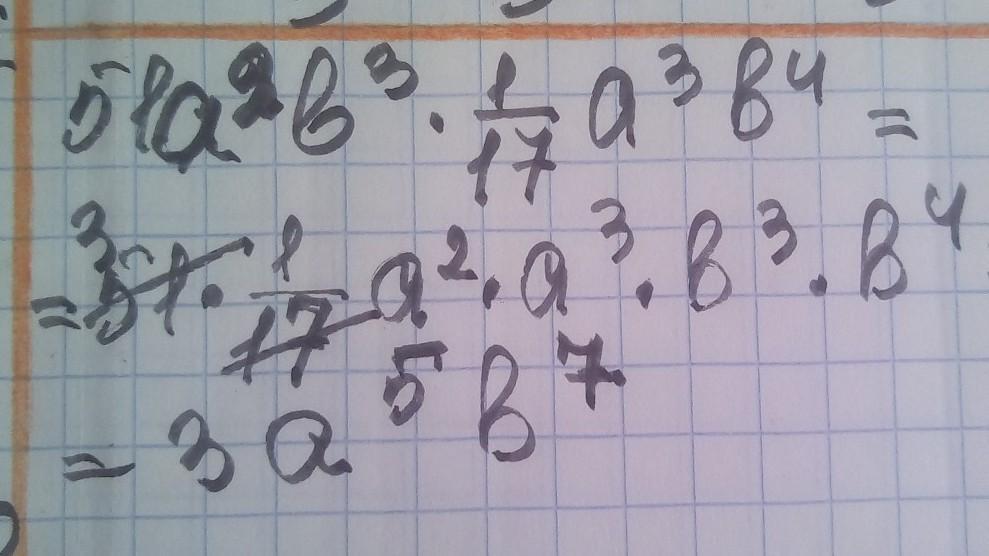 51a²b³ · 1/17 a³b⁴ =
= 51 · 1/17 a² · a³ · b³ · b⁴
3
= 3a⁵b⁷